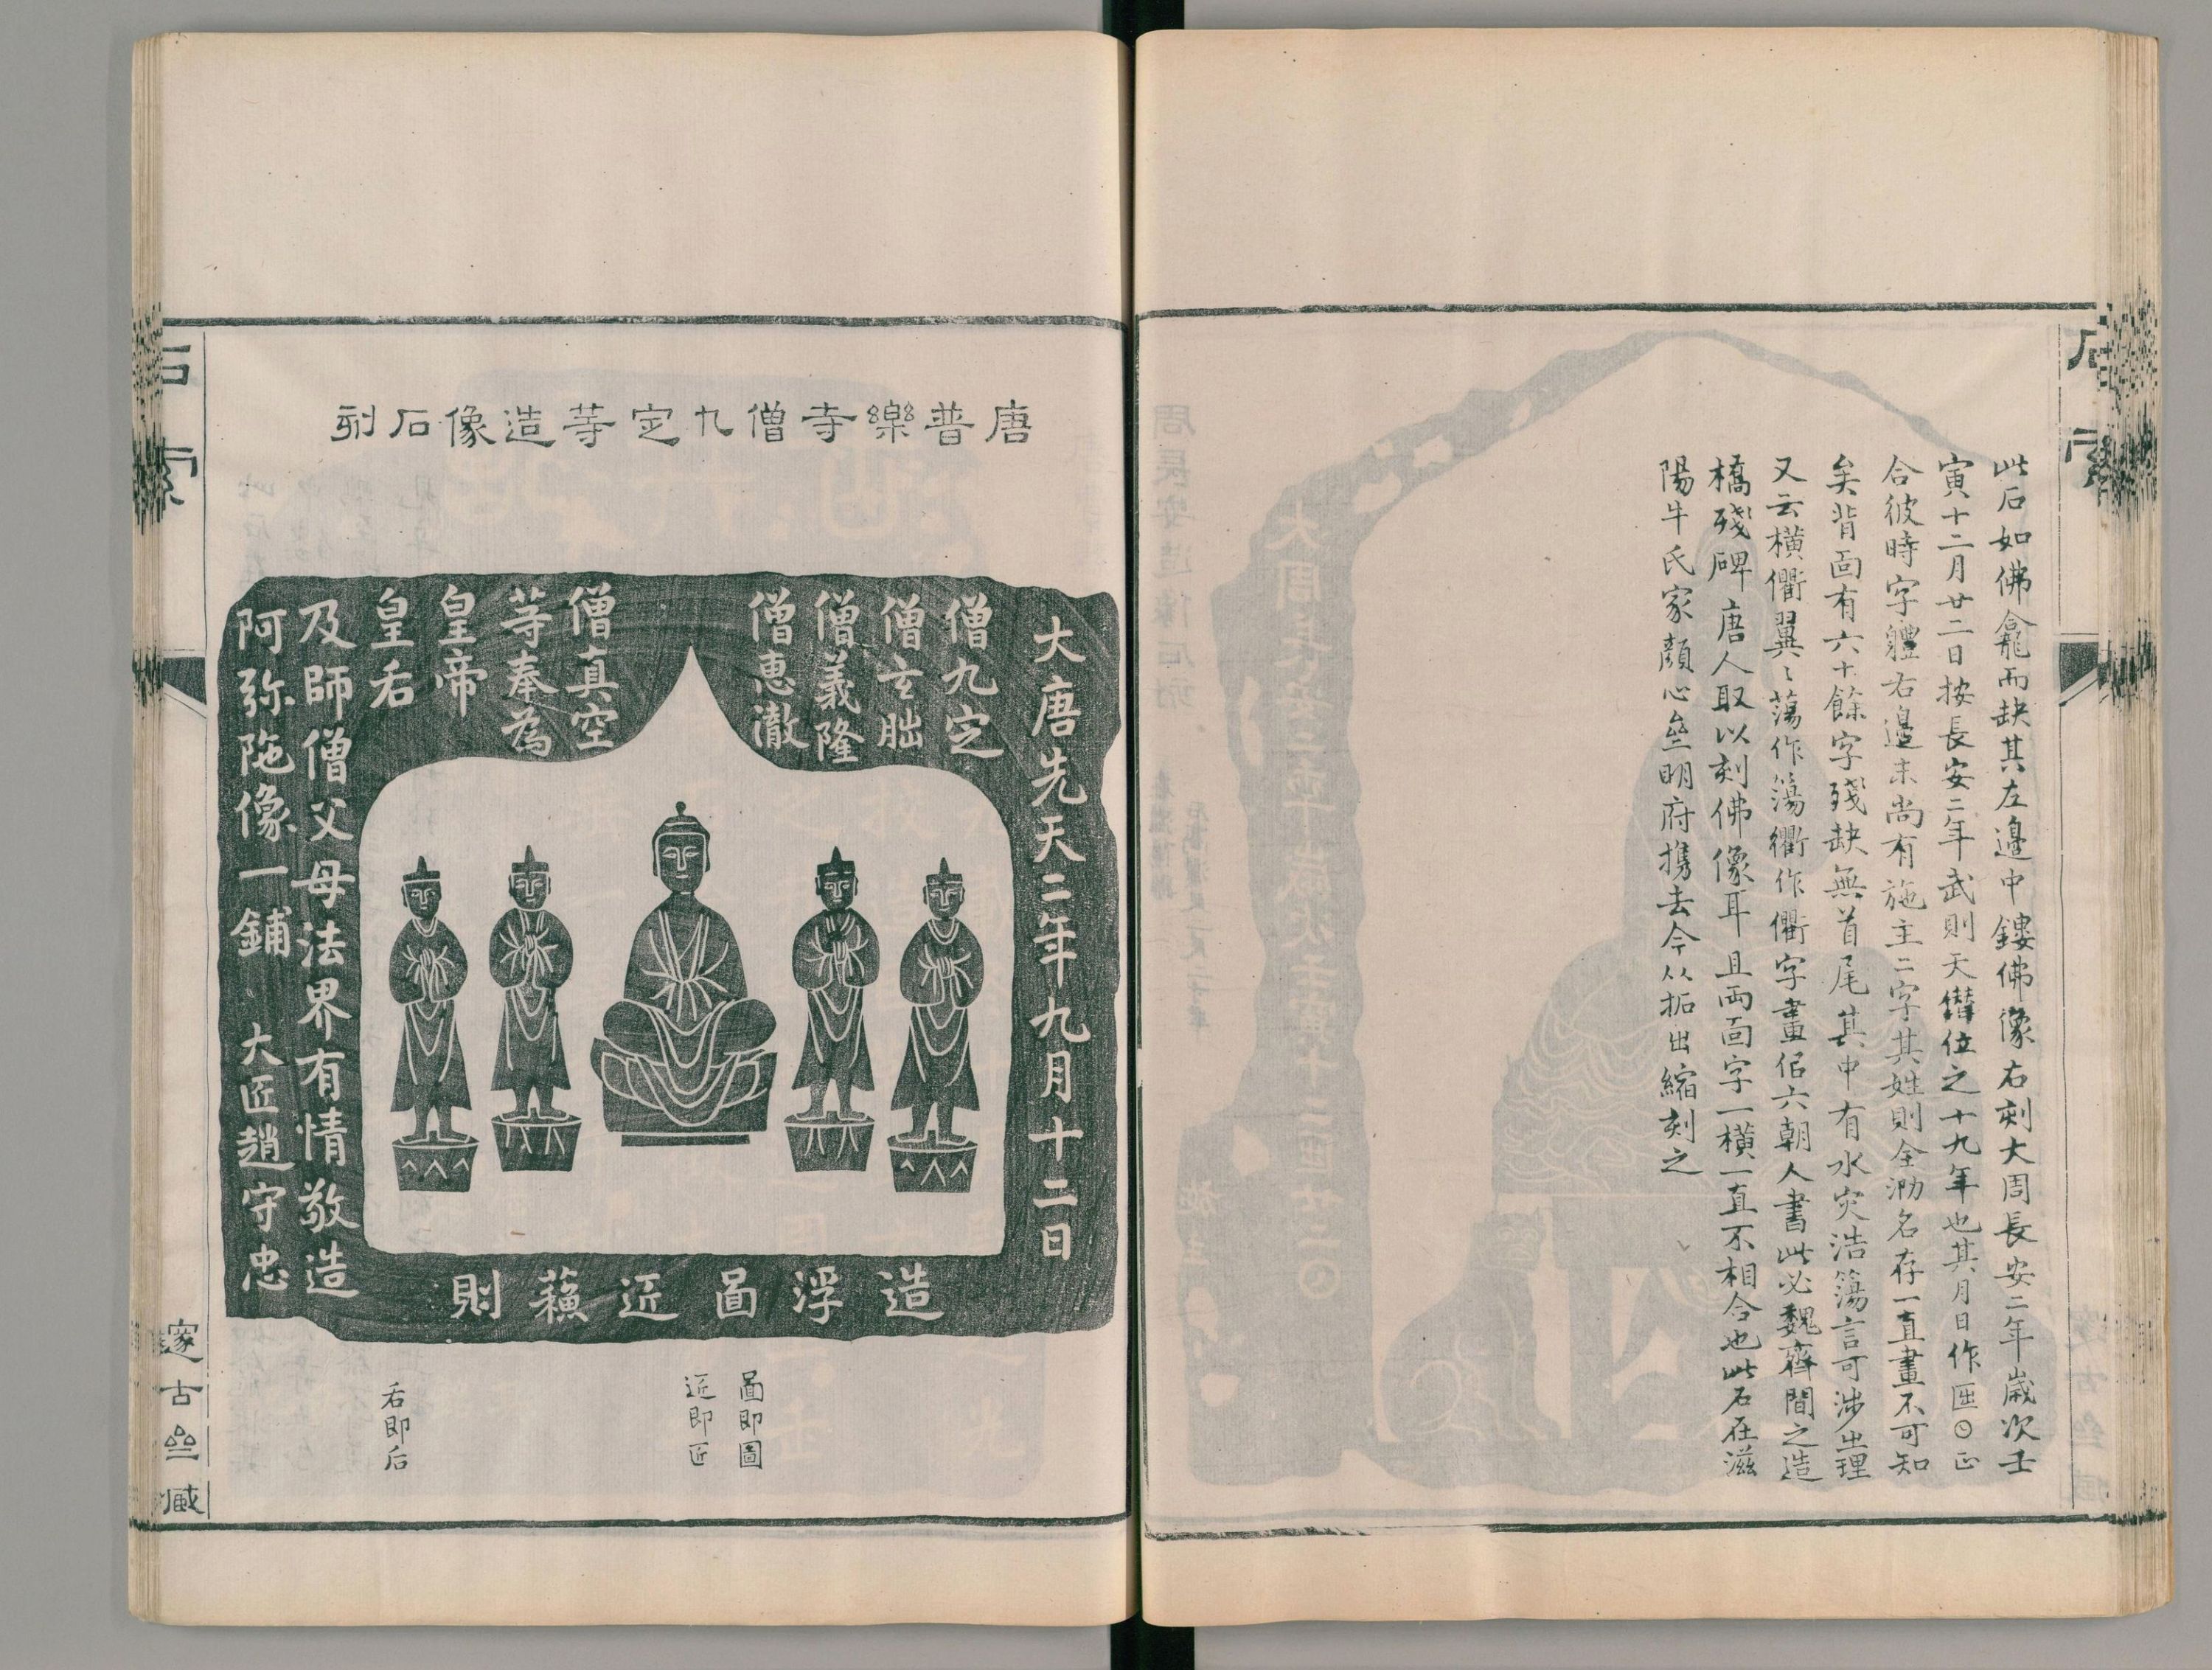 此石如佛龕而缺其左邉中鏤佛像右刻大周長安二年歲次壬
寅十二月廿二日按長安二年武則天僭位之十九年也其月日作𠥱𡆠正
合彼時字軆右邉末尚有施主二字其姓則全泐名存一直畫不可知
矣背面有六十餘字殘缺無首尾其中有水灾浩蕩言可涉㞢理
又云橫衢翼〻蕩作簜衢作衢字畫佀六朝人書此必魏齊間之造
橋殘碑唐人取以刻佛像耳且兩面字一橫一直不相合也此石在滋
陽牛氏家顏心垒明府携去今从拓出縮刻之
唐普樂寺僧九定等造像石刻
大唐先天二年九月十二日
僧九定
僧玄朏
僧義隆
僧惠澈
僧真空
等奉為
皇帝
皇𠯑
及師僧父母法界有情敬造
阿弥陁像一鋪 大匠趙守忠
造浮啚近蘓則
啚即圖
近即匠
𠯑即后
石索
邃古亝臧
石索